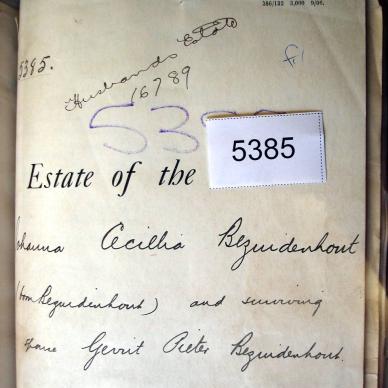 386/132 3,000 9/06.
5385.
Husbands Estate
16789
53
5385
Estate of the
Cecillia Bezuidenhout
(born Bezuidenhout) and surviving
Gerrit Pieter Bezuidenhout.